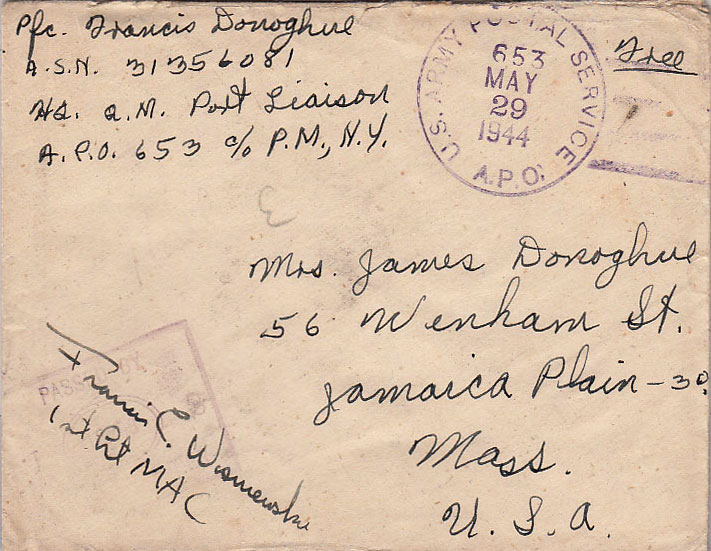 Pfc. Francis Donoghue
A.S.N. 31356081
Hd. Q.M. Port Liaison
A.P.O. 653 c/o P.M., N.Y.
U.S. ARMY POSTAL SERVICE
653
MAY
29
1944
A.P.O.
Free
3
Mrs. James Donoghue
56 Wenham St.
Jamaica Plain - 30.
Mass.
U. S. A.
PASSED BY
Francis C. Wisniewski
1st Lt MAC